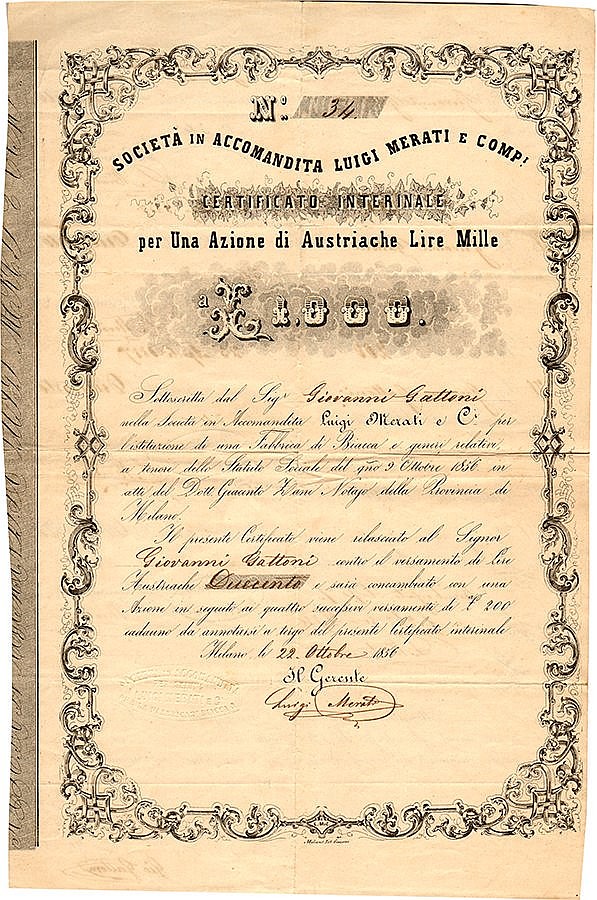 N.º 34
SOCIETÀ IN ACCOMANDITA LUIGI MERATI E COMP.
CERTIFICATO INTERINALE
per Una Azione di Austriache Lire Mille
a L 1.000.
Sottoscritta dal Sig.r Giovanni Gattoni
nella Società in Accomandita Luigi Merati e C.i per
l'istituzione di una Fabbrica di Biacca e generi relativi,
a tenore dello Statuto Sociale del gno 9 Ottobre 1856 in
atti del Dott. Giacinto Zani Notajo della Provincia di
Milano.
Il presente Certificato viene rilasciato al Signor
Giovanni Gattoni contro il versamento di Lire
Austriache Duecento e sarà concambiato con una
Azione in seguito ai quattro successivi versamenti de £ 200
cadauno da annotarsi a tergo del presente Certificato interinale
Milano, li 22. Ottobre 1856
Il Gerente
Luigi Merati